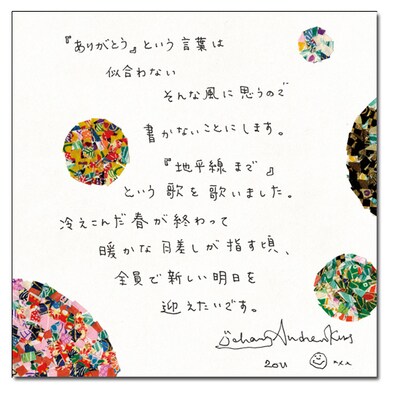 『ありがとう』という言葉は
似合わない
そんな風に思うので
書かないことにします。
『地平線まで』
という歌を歌いました。
冷えこんだ春が終わって
暖かな日差しが指す頃、
全員で新しい明日を
迎えたいです。
2011 xxx